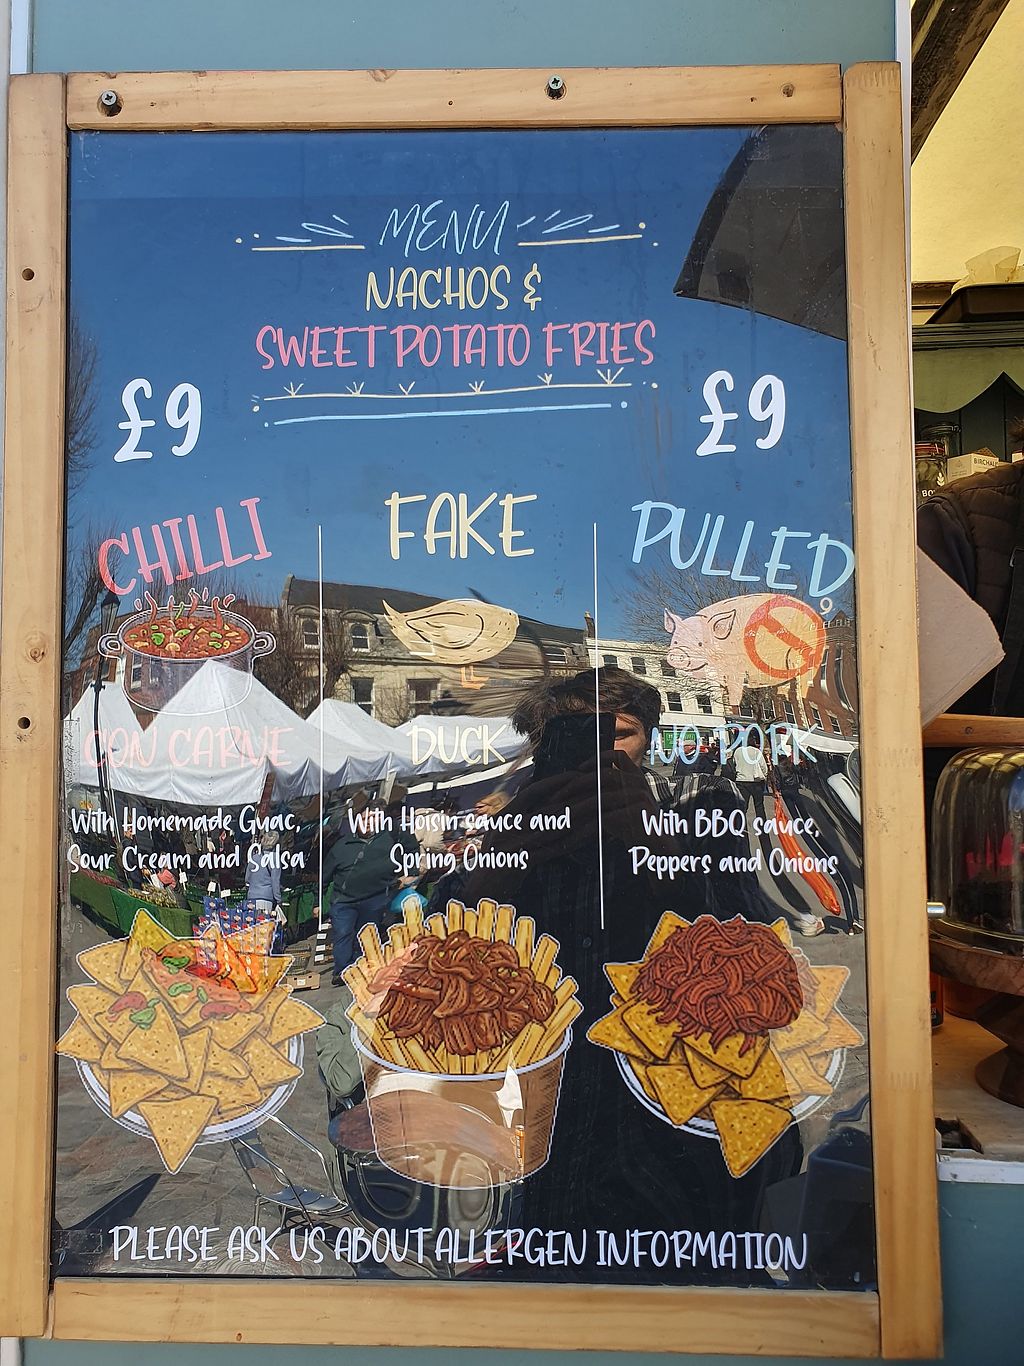 MENU
NACHOS &
SWEET POTATO FRIES
£9
£9
CHILLI
CON CARNE
With Homemade Guac,
Sour Cream and Salsa
FAKE
DUCK
With Hoisin sauce and
Spring Onions
PULLED
NO PORK
With BBQ sauce,
Peppers and Onions
PLEASE ASK US ABOUT ALLERGEN INFORMATION